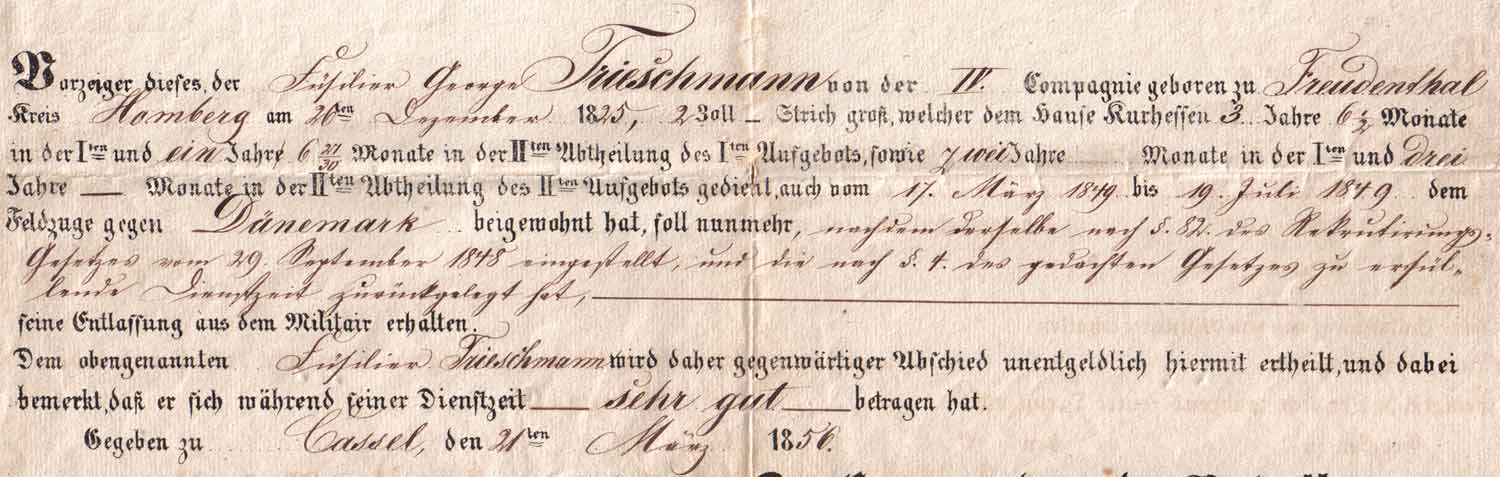 Vorzeiger dieses, der Füsilier George Trieschmann von der IV. Compagnie geboren zu Freudenthal
Kreis Homberg am 20ten Dezember 1825, 2 Zoll – Strich groß, welcher dem Hause Kurhessen 3 Jahre 6 1/2 Monate
in der Iten und ein Jahre 6 27/30 Monate in der IIten Abtheilung des Iten Aufgebots, sowie zwei Jahre Monate in der Iten und drei
Jahre — Monate in der IIten Abtheilung des IIten Aufgebots gedient, auch vom 17. März 1849 bis 19. Juli 1849 dem
Feldzuge gegen Dänemark beigewohnt hat, soll nunmehr, nachdem derselbe nach §. 82. des Rekrutirungs-
Gesetzes vom 29. September 1848 eingestellt, und die nach §. 4. des gedachten Gesetzes zu erfül-
lende Dienstzeit zurückgelegt hat,
seine Entlassung aus dem Militair erhalten.
Dem obengenannten Füsilier Trieschmann wird daher gegenwärtiger Abschied unentgeldlich hiermit ertheilt, und dabei
bemerkt, daß er sich während seiner Dienstzeit — sehr gut — betragen hat.
Gegeben zu Cassel, den 21ten März 1856.